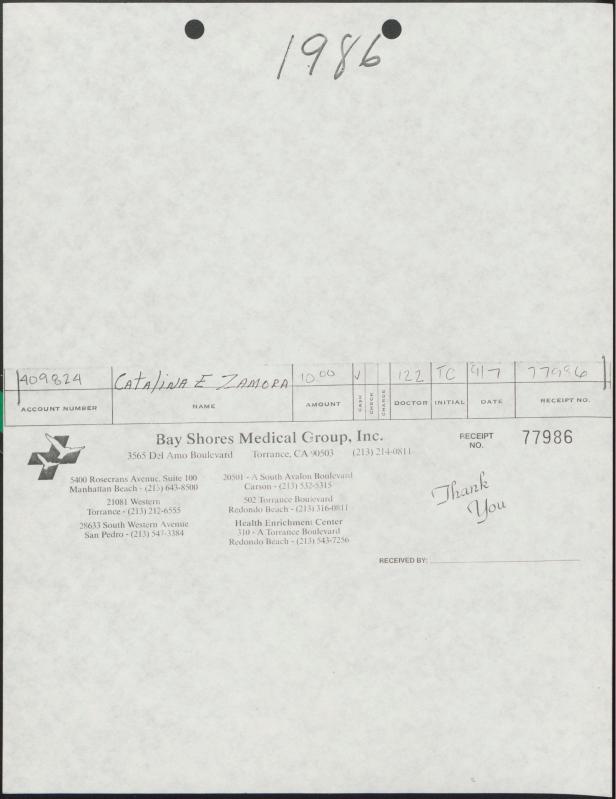 1986
409824 CATALINA E ZAMORA 10 00 122 TC 9/7 77986
ACCOUNT NUMBER NAME AMOUNT CASH CHECK CHARGE DOCTOR INITIAL DATE RECEIPT NO.
Bay Shores Medical Group, Inc.
3565 Del Amo Boulevard Torrance, CA 90503 (213) 214-0811
RECEIPT NO. 77986
5400 Rosecrans Avenue, Suite 100
Manhattan Beach - (213) 643-8500
21081 Western
Torrance - (213) 212-6555
28633 South Western Avenue
San Pedro - (213) 547-3384
20501 - A South Avalon Boulevard
Carson - (213) 532-5315
502 Torrance Boulevard
Redondo Beach - (213) 316-0811
Health Enrichment Center
310 - A Torrance Boulevard
Redondo Beach - (213) 543-7256
Thank
You
RECEIVED BY: